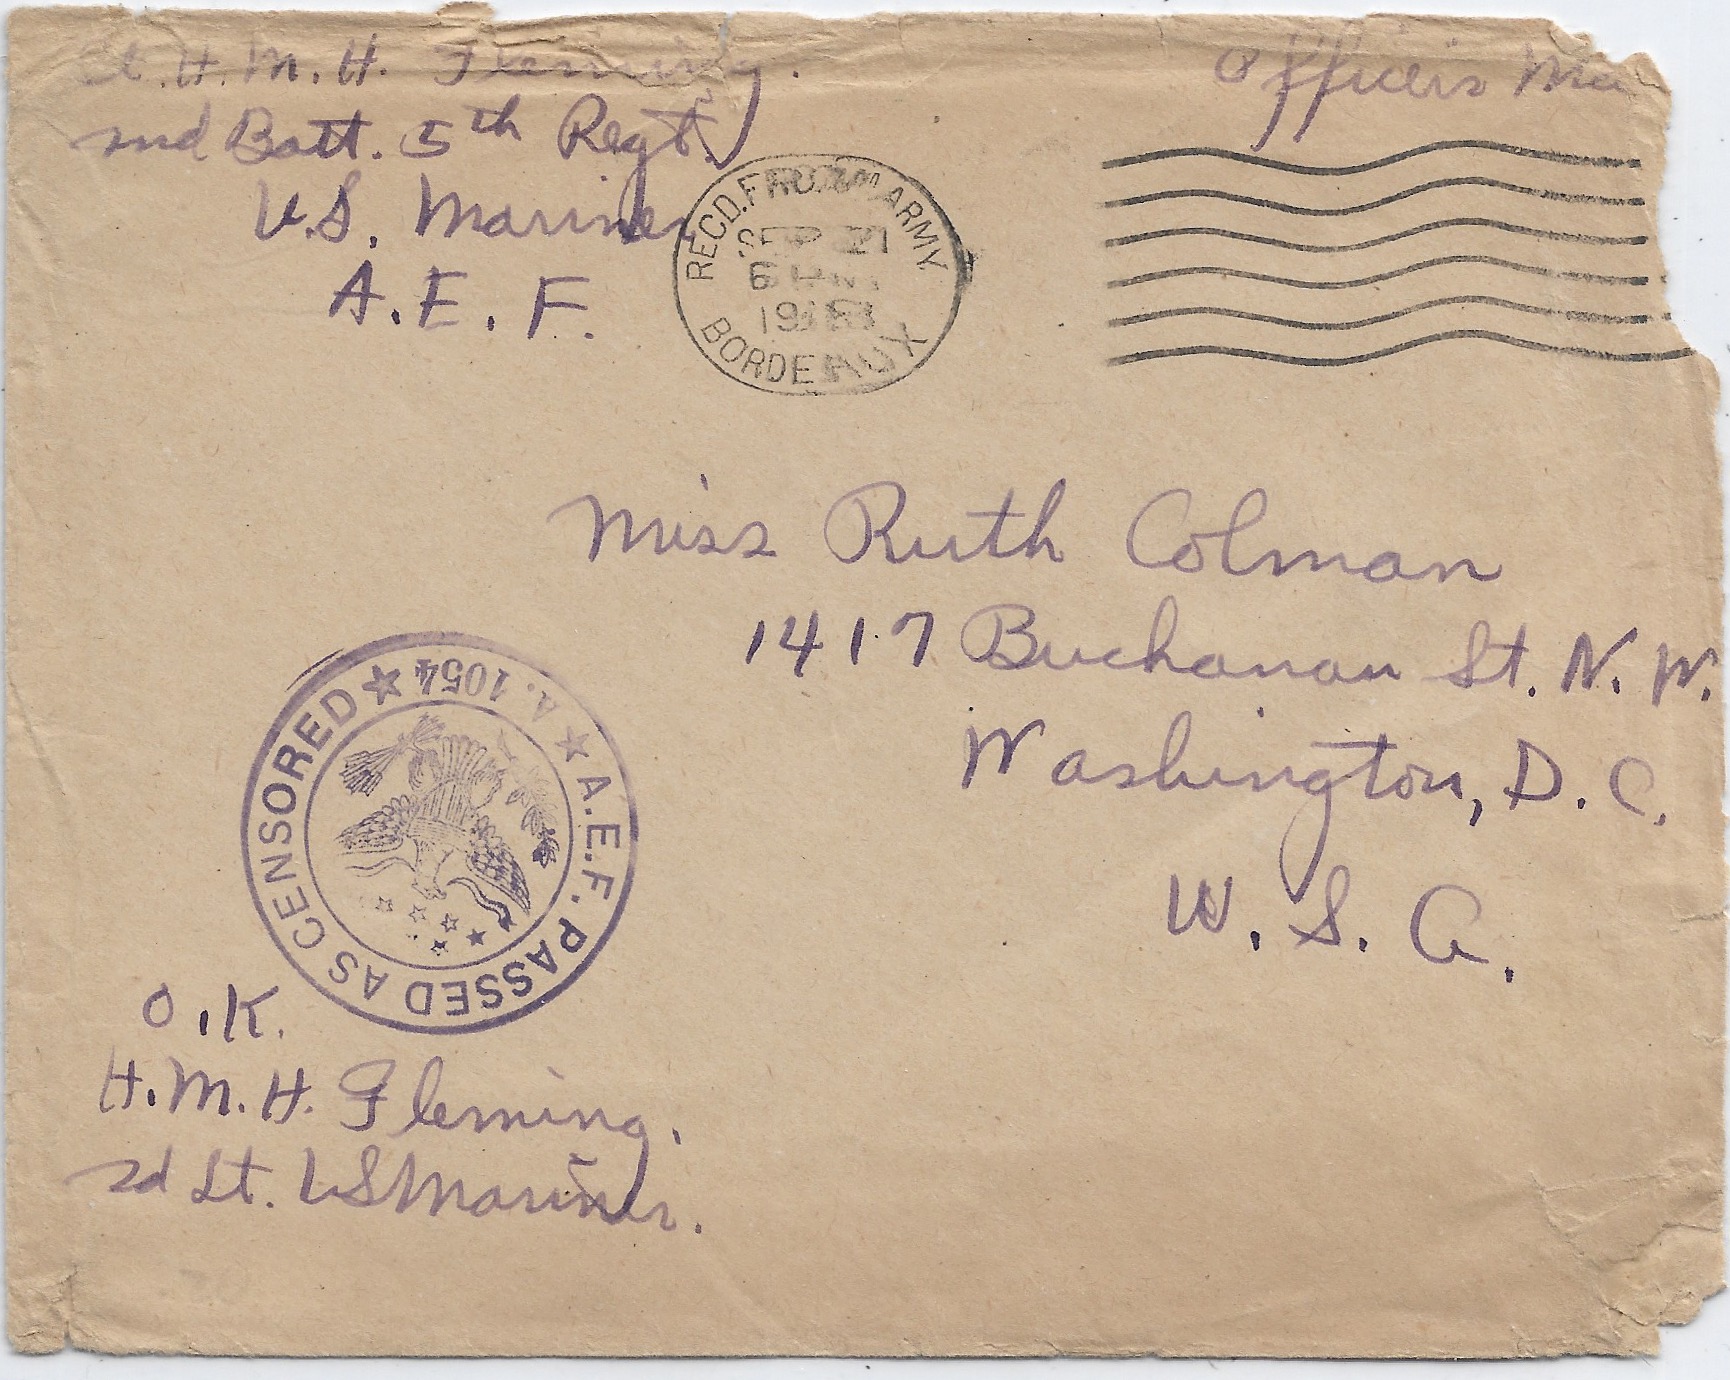 Lt. H. M. H. Fleming.
2nd Batt. 5th Regt.
U.S. Marines
A. E. F.
Officer's Ma
RECD. FROM ARMY
SEP 21
1918
BORDEAUX
Miss Ruth Colman
1417 Buchanan St. N. W.
Washington, D. C.
U. S. A.
A.E.F. PASSED AS CENSORED
A. 1054
O.K.
H. M. H. Fleming.
2d Lt. US Marines.